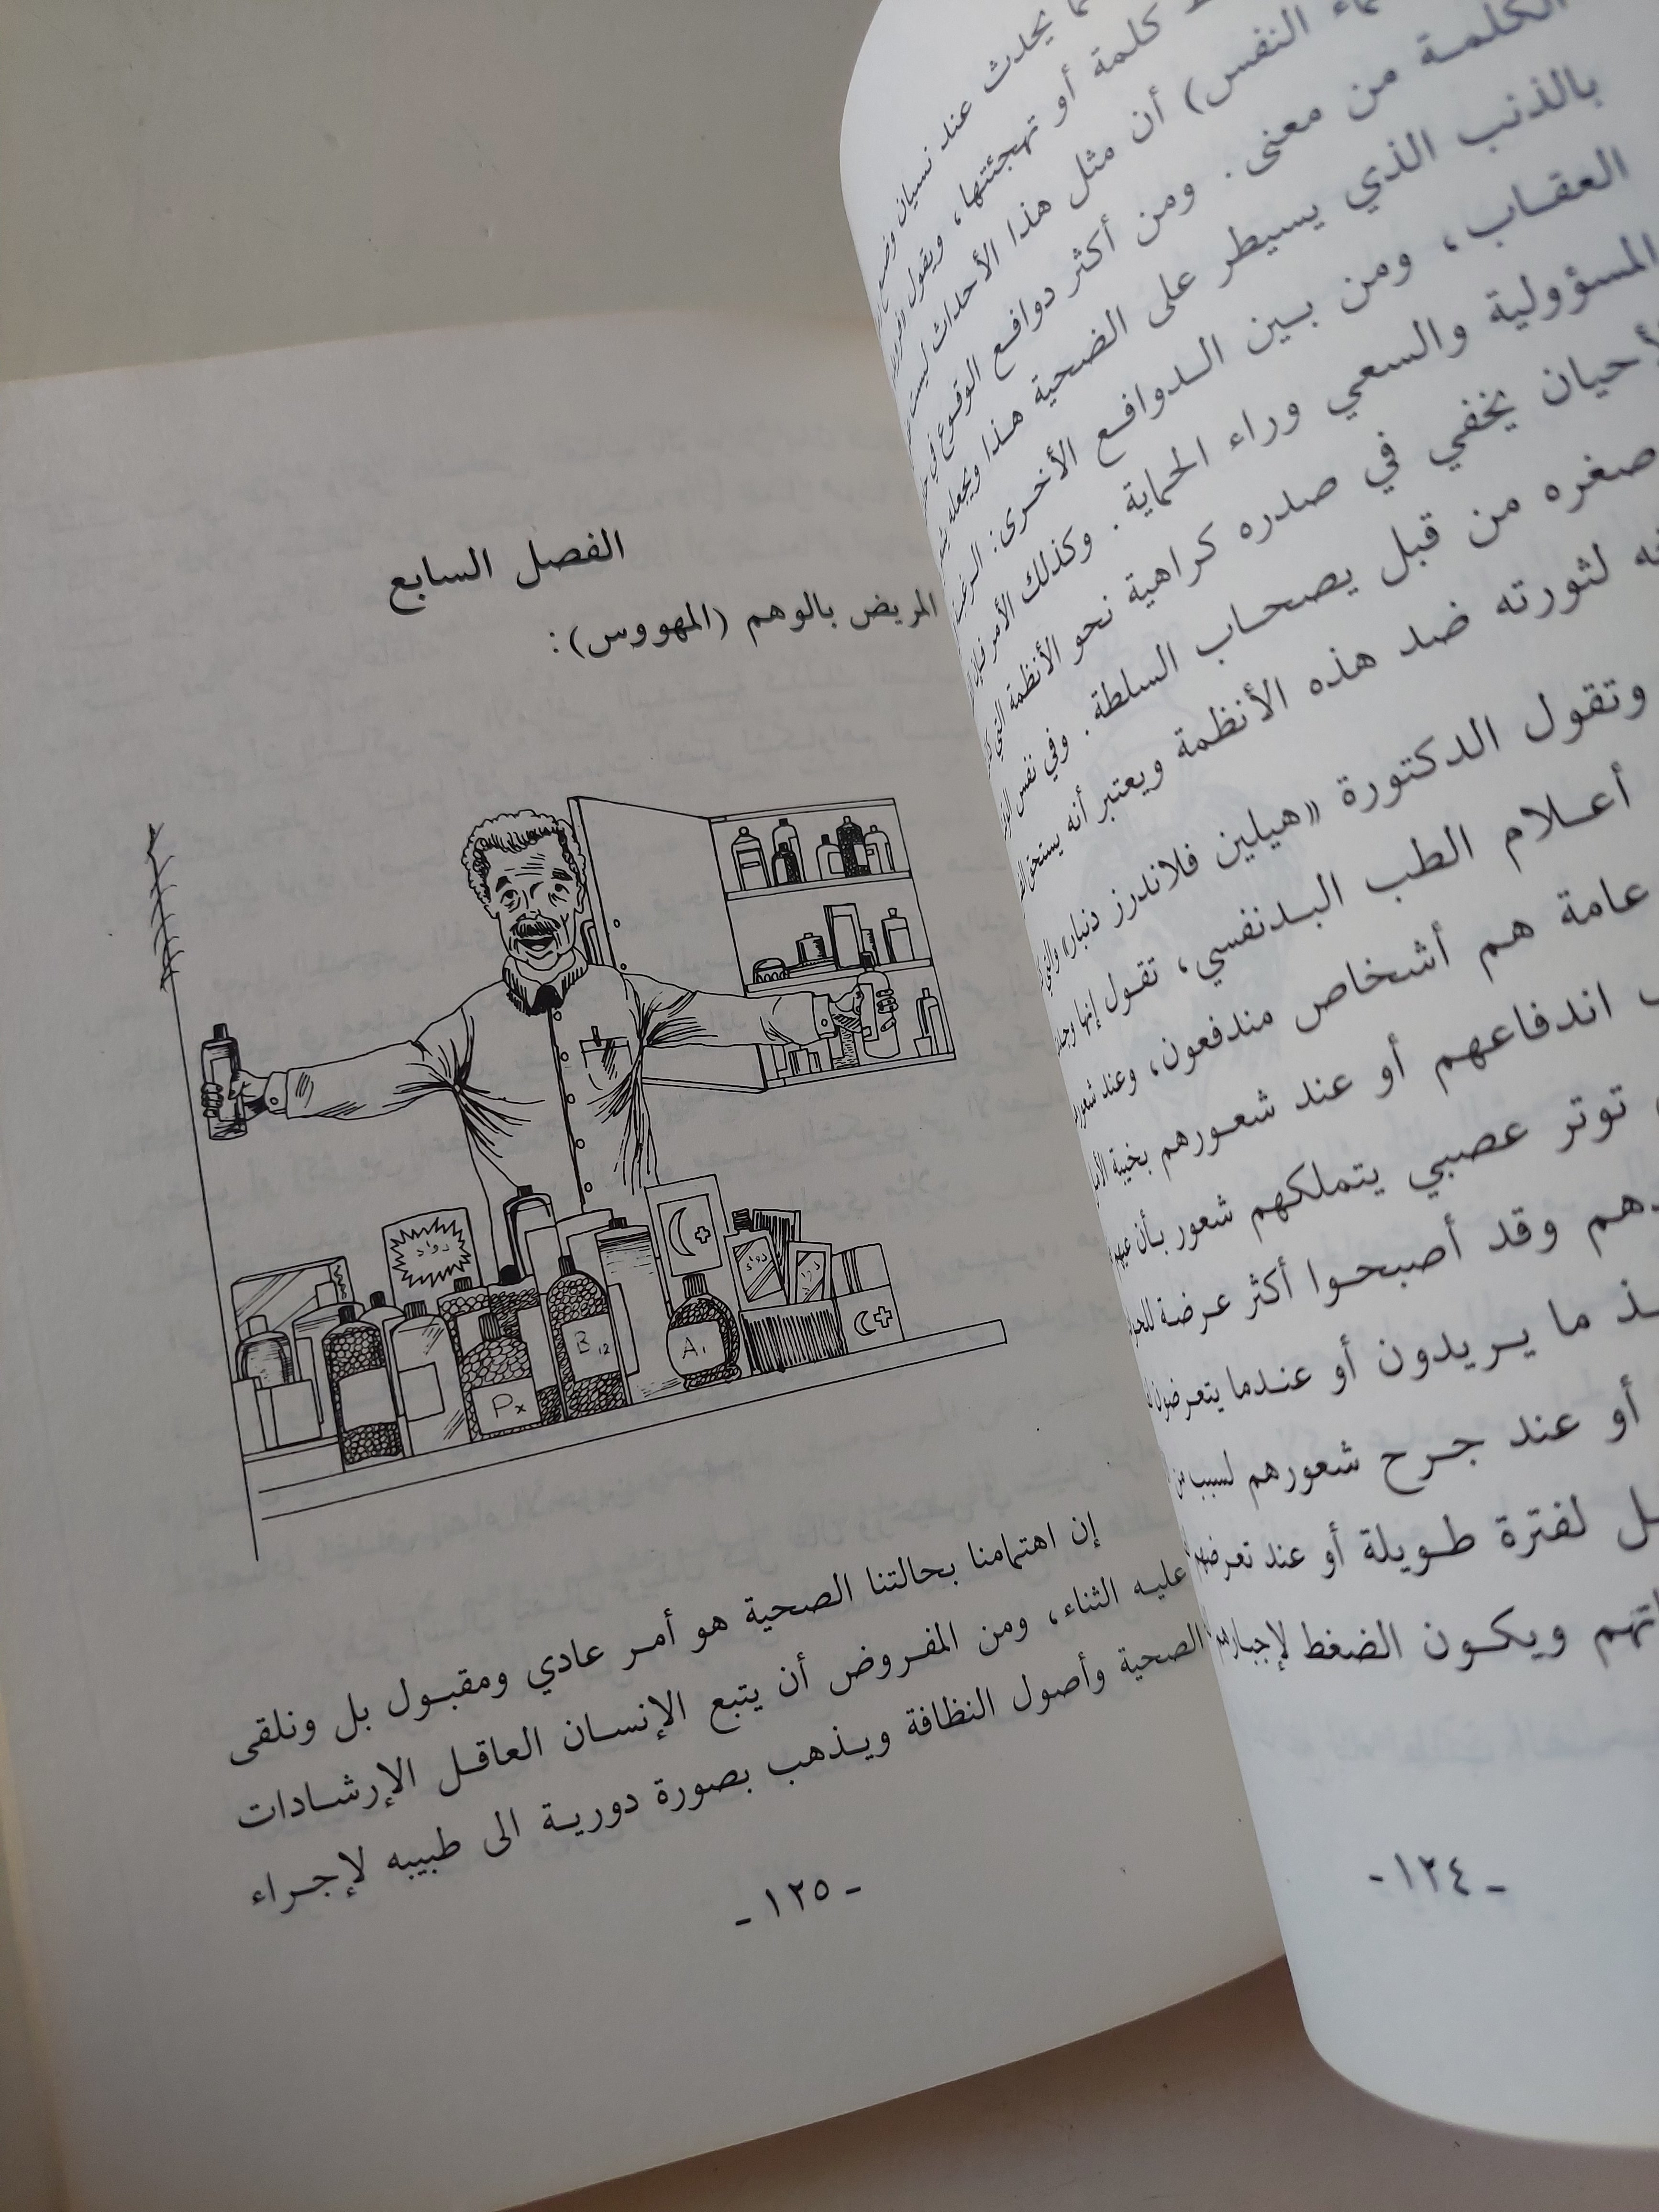 يحدث عند نسيان
كلمة أو تهجئتها، ويقول
النفس) أن مثل هذا الأحداث ليست
الكلمة من معنى. ومن أكثر دوافع الوقوع في
بالذنب الذي يسيطر على الضحية هذا ويجعله
العقاب، ومن بين الدوافع الأخرى:
المسؤولية والسعي وراء الحماية. وكذلك الأمر
الأحيان يخفي في صدره كراهية نحو الأنظمة التي
صغره من قبل يصحاب السلطة. وفي نفس
لثورته ضد هذه الأنظمة ويعتبر أنه يستحق
وتقول الدكتورة «هيلين فلاندرز دنبار» والتي
أعلام الطب البدنفسي، تقول إنها
عامة هم أشخاص مندفعون، وعند
اندفاعهم أو عند شعورهم بخيبة
توتر عصبي يتملكهم شعور بأن
وقد أصبحوا أكثر عرضة
ما يريدون أو عندما يتعرضون
أو عند جرح شعورهم لسبب من
لفترة طويلة أو عند تعرضهم
ويكون الضغط لإجبارهم
ـ ١٢٤ ـ
الفصل السابع
المريض بالوهم (المهووس):
دواء
دواء
دواء
B12
A1
Px
إن اهتمامنا بحالتنا الصحية هو أمر عادي ومقبول بل ونلقى
عليه الثناء، ومن المفروض أن يتبع الإنسان العاقل الإرشادات
الصحية وأصول النظافة ويذهب بصورة دورية الى طبيبه لإجراء
ـ ١٢٥ ـ